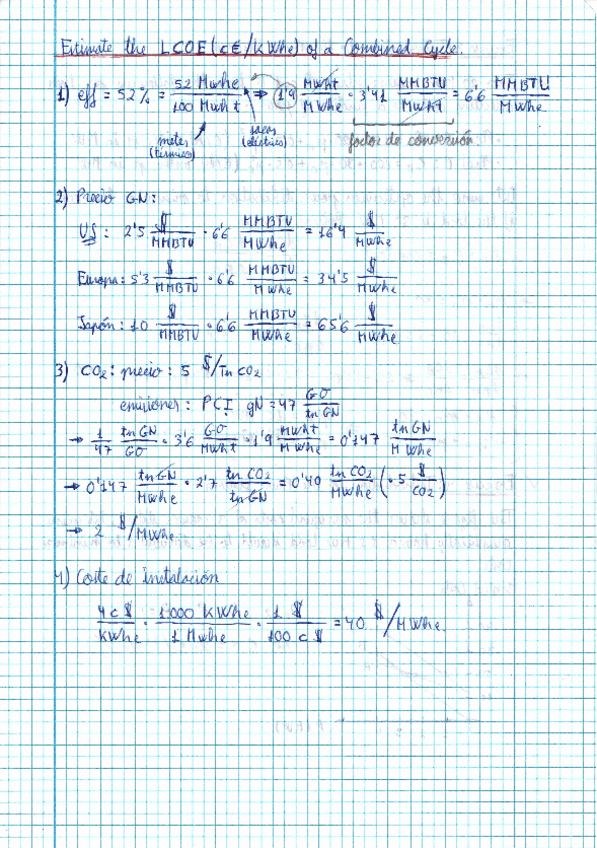 Estimate the LCOE (c€/kWhe) of a Combined Cycle.
1) eff = 52% = 52 Mwhe / 100 Mwht ⇒ 1'9 MWht / MWhe · 3'41 MMBTU / MWht = 6'6 MMBTU / MWhe
metes (térmicos) sacas (eléctrico) factor de conversión
2) Precio GN:
US: 2'5 $ / MMBTU · 6'6 MMBTU / MWhe = 16'4 $ / MWhe
Europa: 5'3 $ / MMBTU · 6'6 MMBTU / MWhe = 34'5 $ / MWhe
Japón: 10 $ / MMBTU · 6'6 MMBTU / MWhe = 65'6 $ / MWhe
3) CO2: precio: 5 $/Tn CO2
emisiones: PCI gN = 47 GJ / tn GN
→ 1 / 47 tn GN / GJ · 3'6 GJ / MWht · 1'9 MWht / MWhe = 0'147 tn GN / MWhe
→ 0'147 tn GN / MWhe · 2'7 tn CO2 / tn GN = 0'40 tn CO2 / MWhe ( · 5 $ / CO2 )
→ 2 $/MWhe
4) Coste de instalación
4 c$ / kWhe · 1000 kWhe / 1 Mwhe · 1 $ / 100 c$ = 40 $/MWhe.